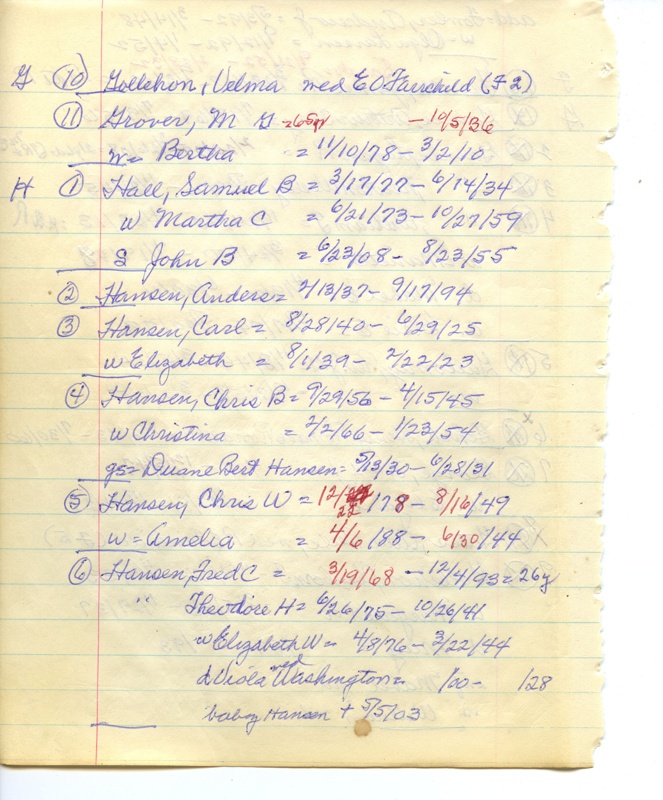 G (10) Gollehon, Velma med E O Fairchild (F2)
(11) Grover, M G =65yr - 10/5/36
w= Bertha = 11/10/78 - 3/2/10
H (1) Hall, Samuel B = 3/17/77 - 6/14/34
w Martha C = 6/21/73 - 10/27/59
S John B = 6/23/08 - 8/23/55
(2) Hansen, Anders = 2/13/37 - 9/17/94
(3) Hansen, Carl = 8/28/40 - 6/29/25
w Elizabeth = 8/1/39 - 2/22/23
(4) Hansen, Chris B = 9/29/56 - 4/15/45
w Christina = 2/2/66 - 1/23/54
gs= Duane Bert Hansen = 5/13/30 - 6/28/31
(5) Hansen, Chris W = 12/22/78 - 8/16/49
w = Amelia = 4/6/88 - 6/30/44
(6) Hansen, Fred C = 3/19/68 - 12/4/93 = 26y
" Theodore H = 6/26/75 - 10/26/41
w Elizabeth W = 4/8/76 - 3/22/44
d Viola med Washington = /00 - /28
baby Hansen + 5/5/03